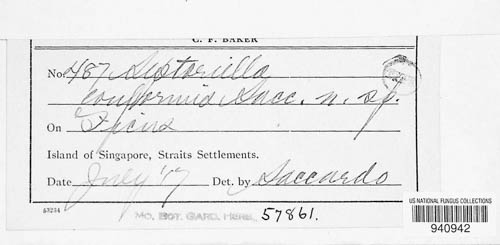 C. F. BAKER
No. 487 Septoriella
conformis Sacc. n. sp.
On Ficus
Island of Singapore, Straits Settlements.
Date July '17 Det. by Saccardo
53234
MO. BOT. GARD. HERB. 57861.
US NATIONAL FUNGUS COLLECTIONS
940942